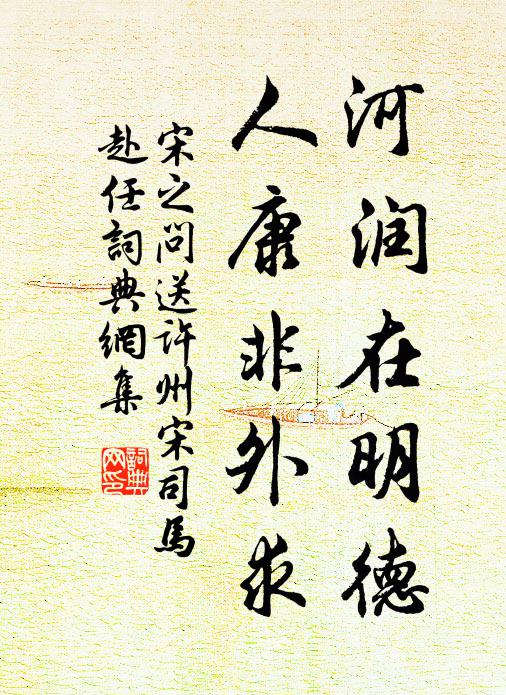 河润在明德
人康非外求
宋之问送许州宋司馬
赴任詞典網集
詞典网印